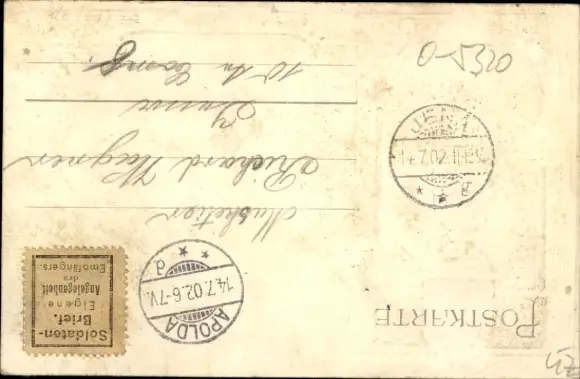 POSTKARTE
APOLDA
14.7.02.6-7V.
d
Soldaten-
Brief.
Eigene
Angelegenheit
des
Empfängers.
Musketier
Richard Wagner
Jena
10ten Comp.
JENA
14.7.02.11-12
g
0-5320